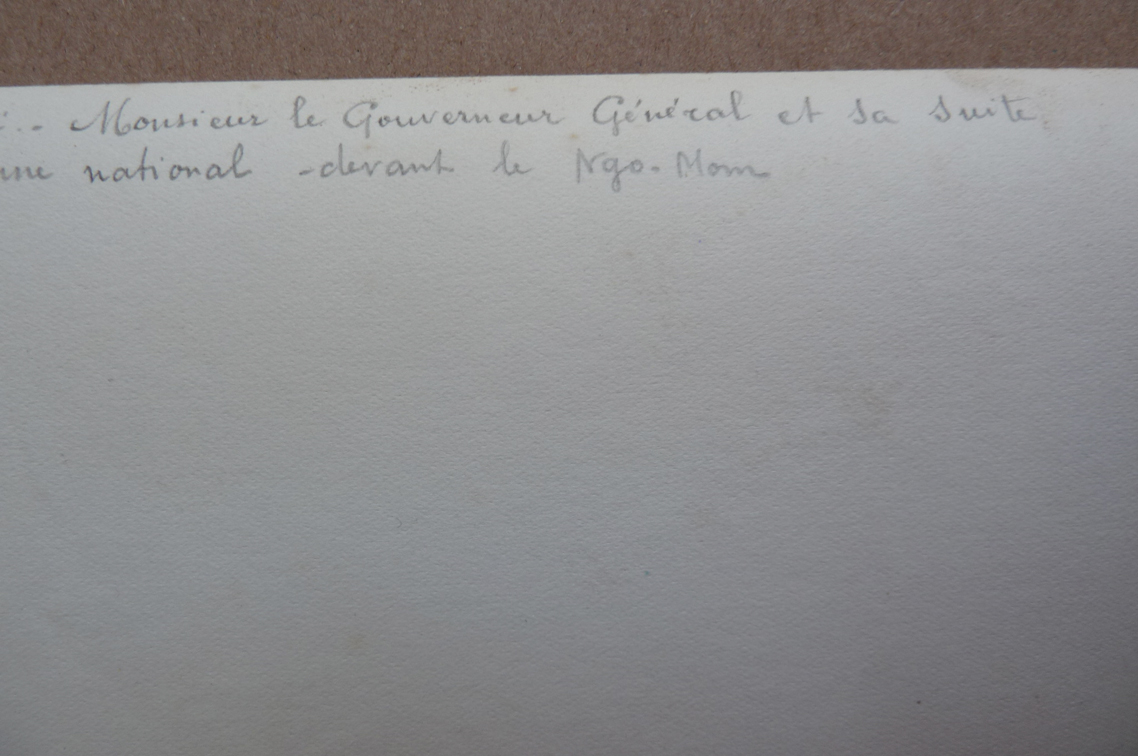 .- Monsieur le Gouverneur Général et sa suite
national - devant le Ngo-Mom